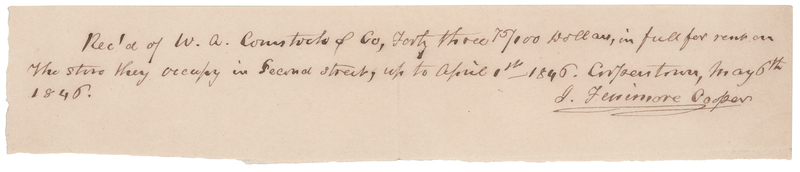 Rec'd of W. A. Comstock & Co, Forty three 75/100 Dollars, in full for rent on
the store they occupy in Second street, up to April 1st 1846. Cooperstown, May 6th
1846.
J. Fenimore Cooper